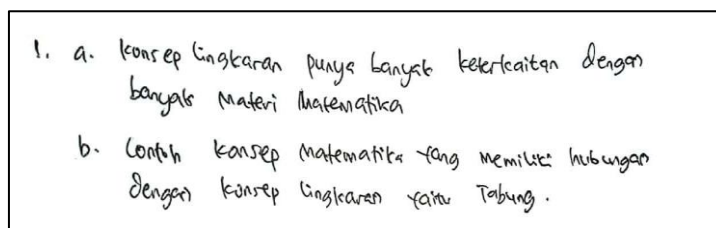 1. a. Konsep lingkaran punya banyak keterkaitan dengan
banyak materi Matematika
b. Contoh konsep matematika yang memiliki hubungan
dengan konsep lingkaran yaitu Tabung.